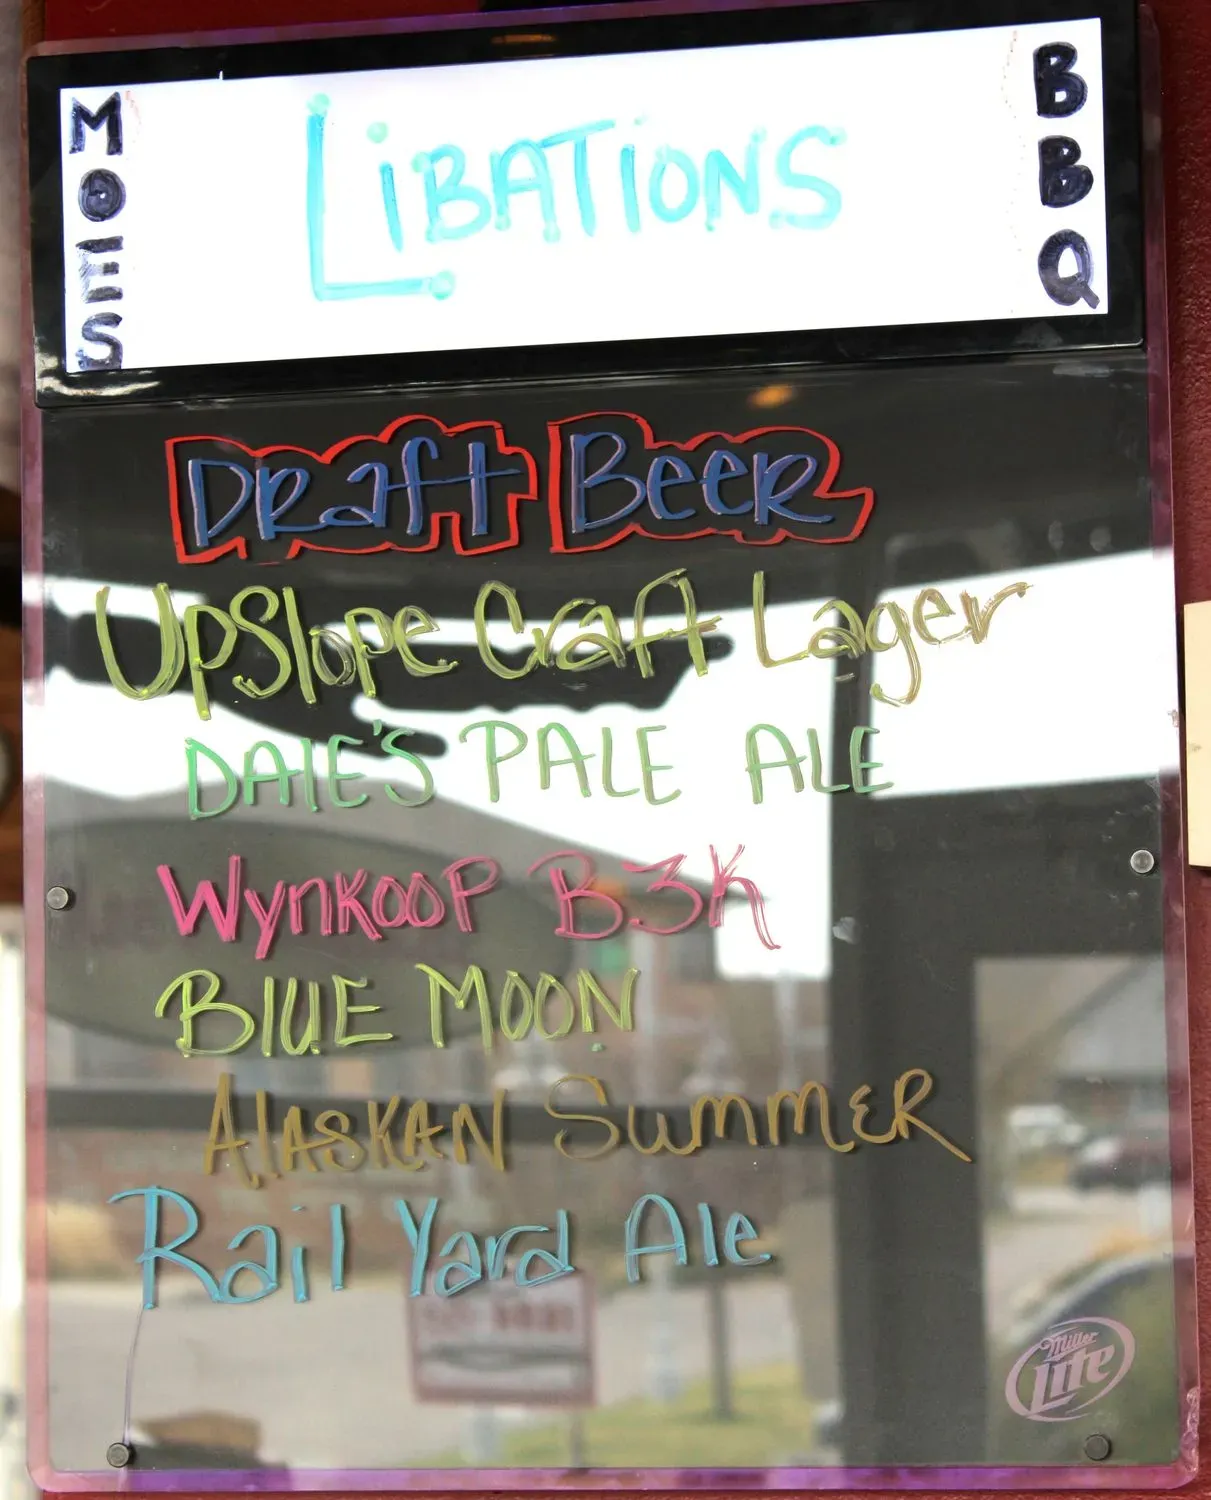 MOES
LIBATIONS
BBQ
Draft Beer
Upslope Craft Lager
DALE'S PALE ALE
Wynkoop B3K
BLUE MOON
ALASKAN SUMMER
Rail Yard Ale
Miller
Lite